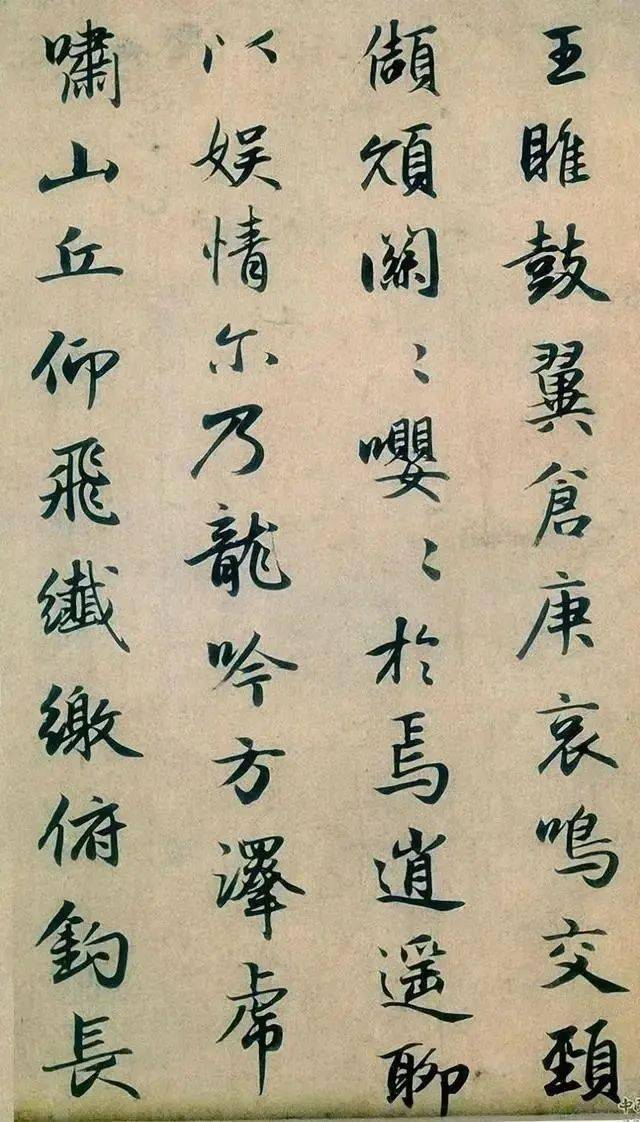 王雎鼓翼倉庚哀鳴交頸
頡頏關〻嚶〻於焉逍遥聊
以娱情尓乃龍吟方澤虎
嘯山丘仰飛纖繳俯釣長